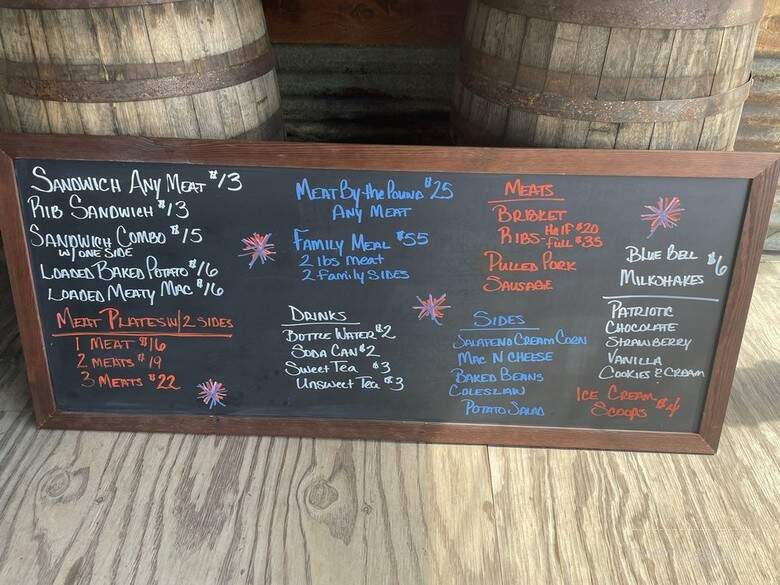 Sandwich Any Meat $13
Rib Sandwich $13
Sandwich Combo $15
w/ one side
Loaded Baked Potato $16
Loaded Meaty Mac $16
Meat Plates w/ 2 sides
1 Meat $16
2 Meats $19
3 Meats $22
Meat By-the Pound $25
Any Meat
Family Meal $55
2 lbs meat
2 Family Sides
Drinks
Bottle Water $2
Soda Can $2
Sweet Tea $3
Unsweet Tea $3
Meats
Brisket
Ribs- Half $20
Full $35
Pulled Pork
Sausage
Sides
Jalapeno Cream Corn
Mac N Cheese
Baked Beans
Coleslaw
Potato Salad
Blue Bell
Milkshakes $6
Patriotic
Chocolate
Strawberry
Vanilla
Cookies & Cream
Ice Cream
Scoops $4